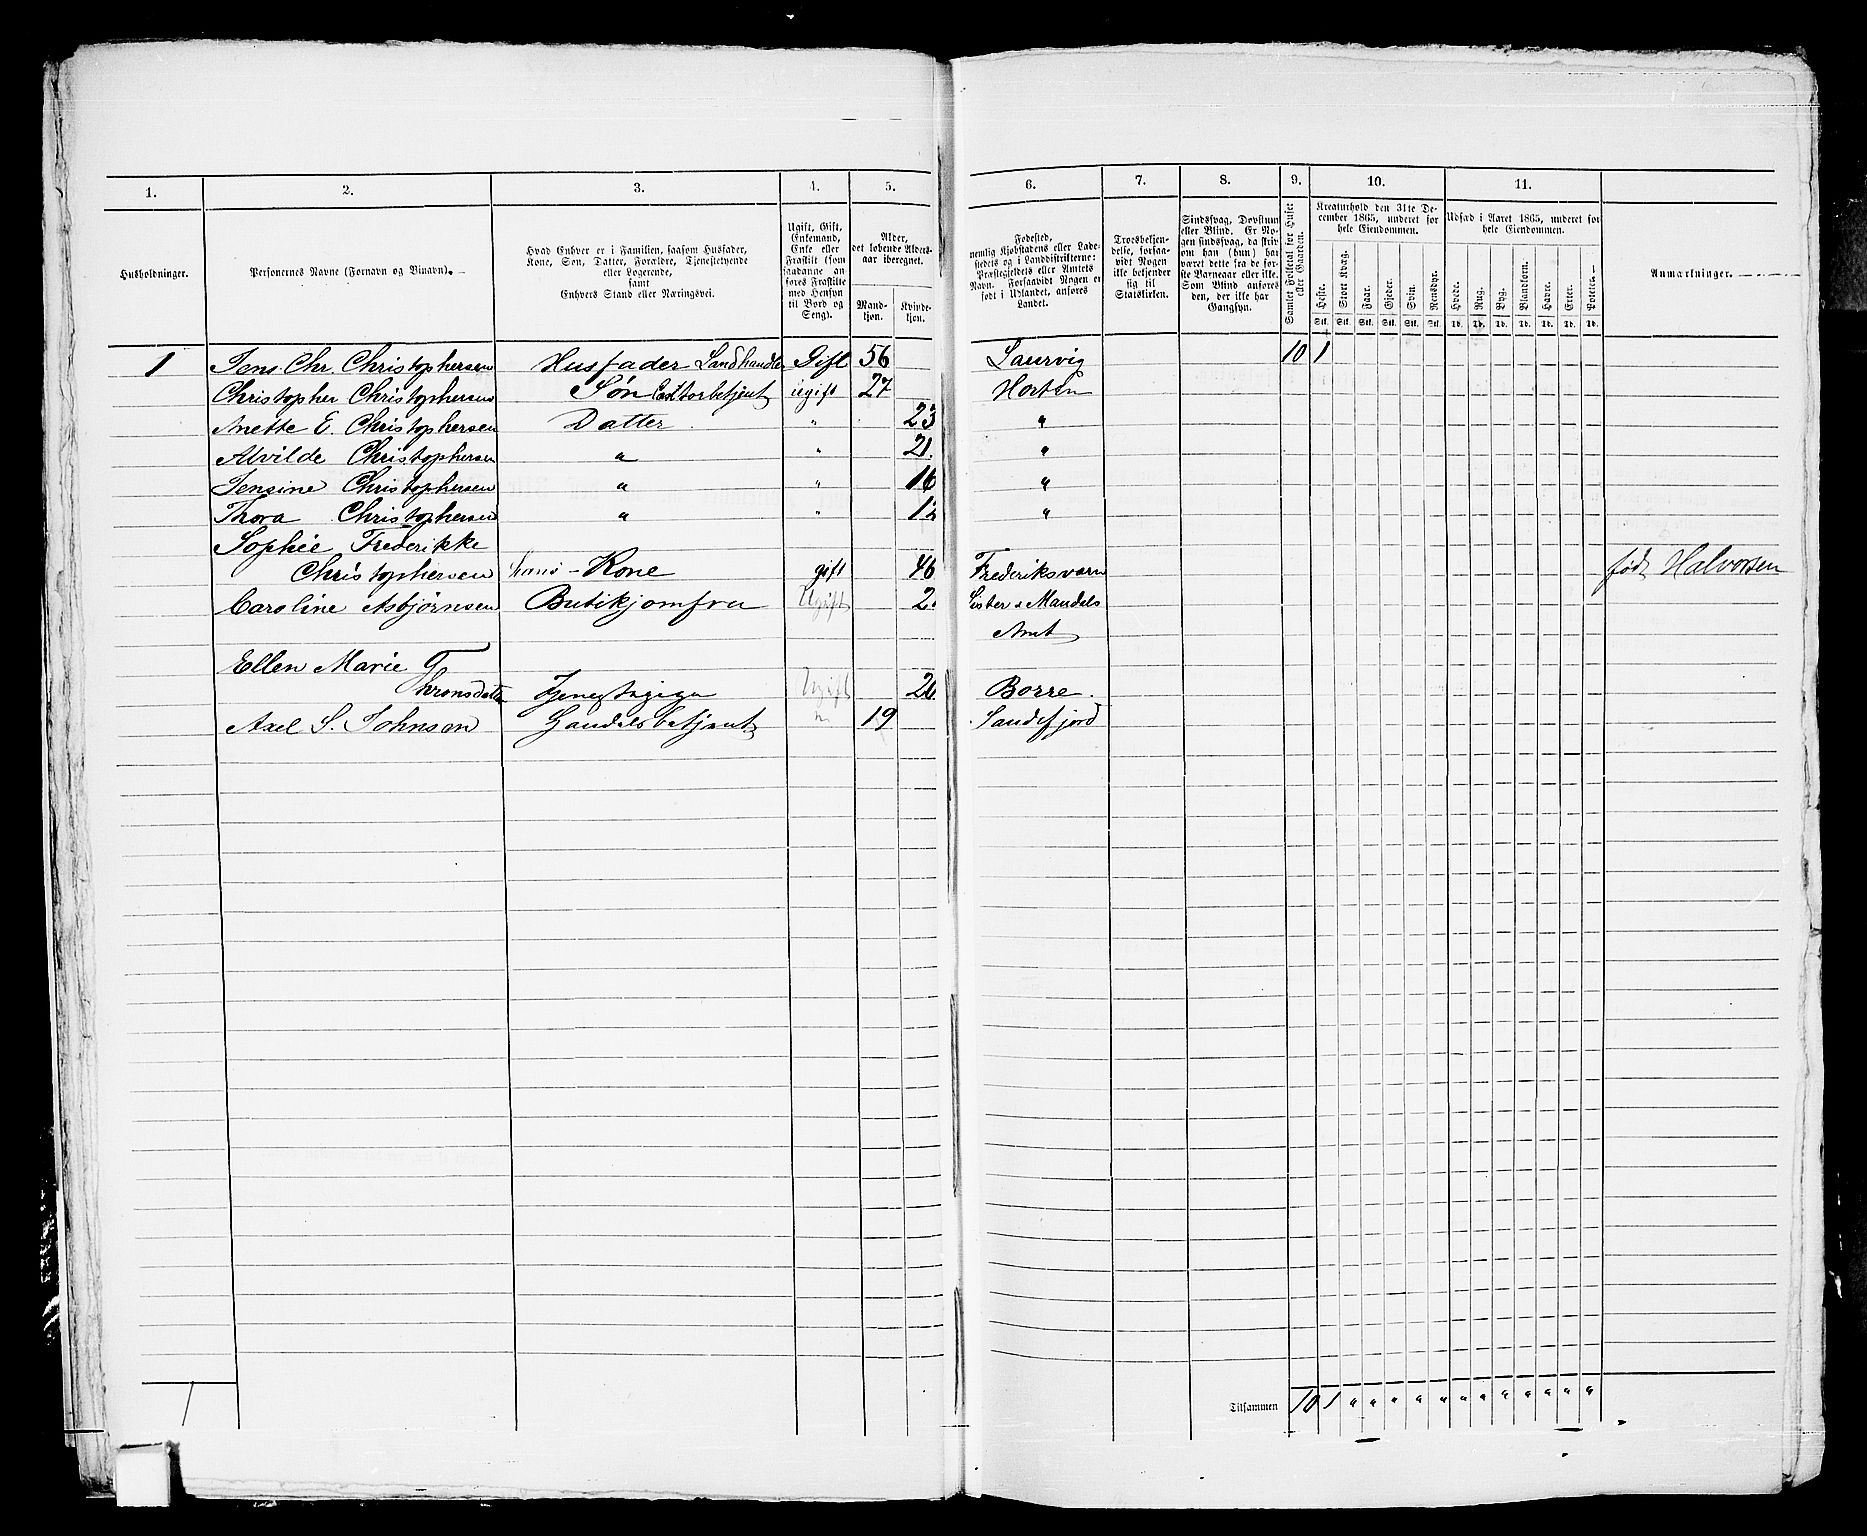 1. 2. 3. 4. 5. 6. 7. 8. 9. 10. 11.
Husholdninger.
Personernes Navne (Fornavn og Binavn).
Hvad Enhver er i Familien, saasom Husfader, Kone, Søn, Datter, Forældre, Tjenestetyende eller Logerende, samt Enhvers Stand eller Næringsvei.
Ugift, Gift, Enkemand, Enke eller Fraskilt (som saadanne anføres Fraskilte med Hensyn til Bord og Seng).
Alder, det løbende Alders-aar iberegnet.
Mand-kjøn. Kvinde-kjøn.
Fødested, nemlig Kjøbstadens eller Ladestedets og i Landdistrikterne: Præstegjeldets eller Amtets Navn. Forsaavidt Nogen er født i Udlandet, anføres Landet.
Troesbekjendelse, forsaavidt Nogen ikke bekjender sig til Statskirken.
Sindssvag, Døvstum eller Blind. Er Nogen sindssvag, da skriv om han (hun) har været dette fra de første Barneaar eller ikke. Som Blind anføres den, der ikke har Gangsyn.
Samlet Folketal for Huset eller Gaarden.
Kreaturhold den 31te December 1865, underet for hele Eiendommen.
Heste. Stort Kvæg. Faar. Gjeder. Svin. Rensdyr.
Stk. Stk. Stk. Stk. Stk. Stk.
Udsæd i Aaret 1865, underet for hele Eiendommen.
Hvede. Rug. Byg. Blandkorn. Havre. Erter. Poteter.
Td. Td. Td. Td. Td. Td. Td.
Anmærkninger.
1 Jens Chr. Christophersen Husfader Landhandler Gift 56 Laurvig 10 1
Christopher Christophersen Søn ugift 27 Horten
Anette E. Christophersen Datter " 23 "
Alvilde Christophersen " " 21 "
Jensine Christophersen " " 16 "
Thora Christophersen " " 12 "
Sophie Frederikke
Christophersen hans Kone gift 46 Frederiksværn født Halvorsen
Caroline Asbjørnsen Butikjomfru Ugift Lister & Mandals
Amt
Ellen Marie
Thronsdatter Tjenestepige Ugift Borre.
Axel S. Johnsen Handelsbetjent " 19 Sandefjord
1
Tilsammen 10 1 " " " " " " " " " " " "